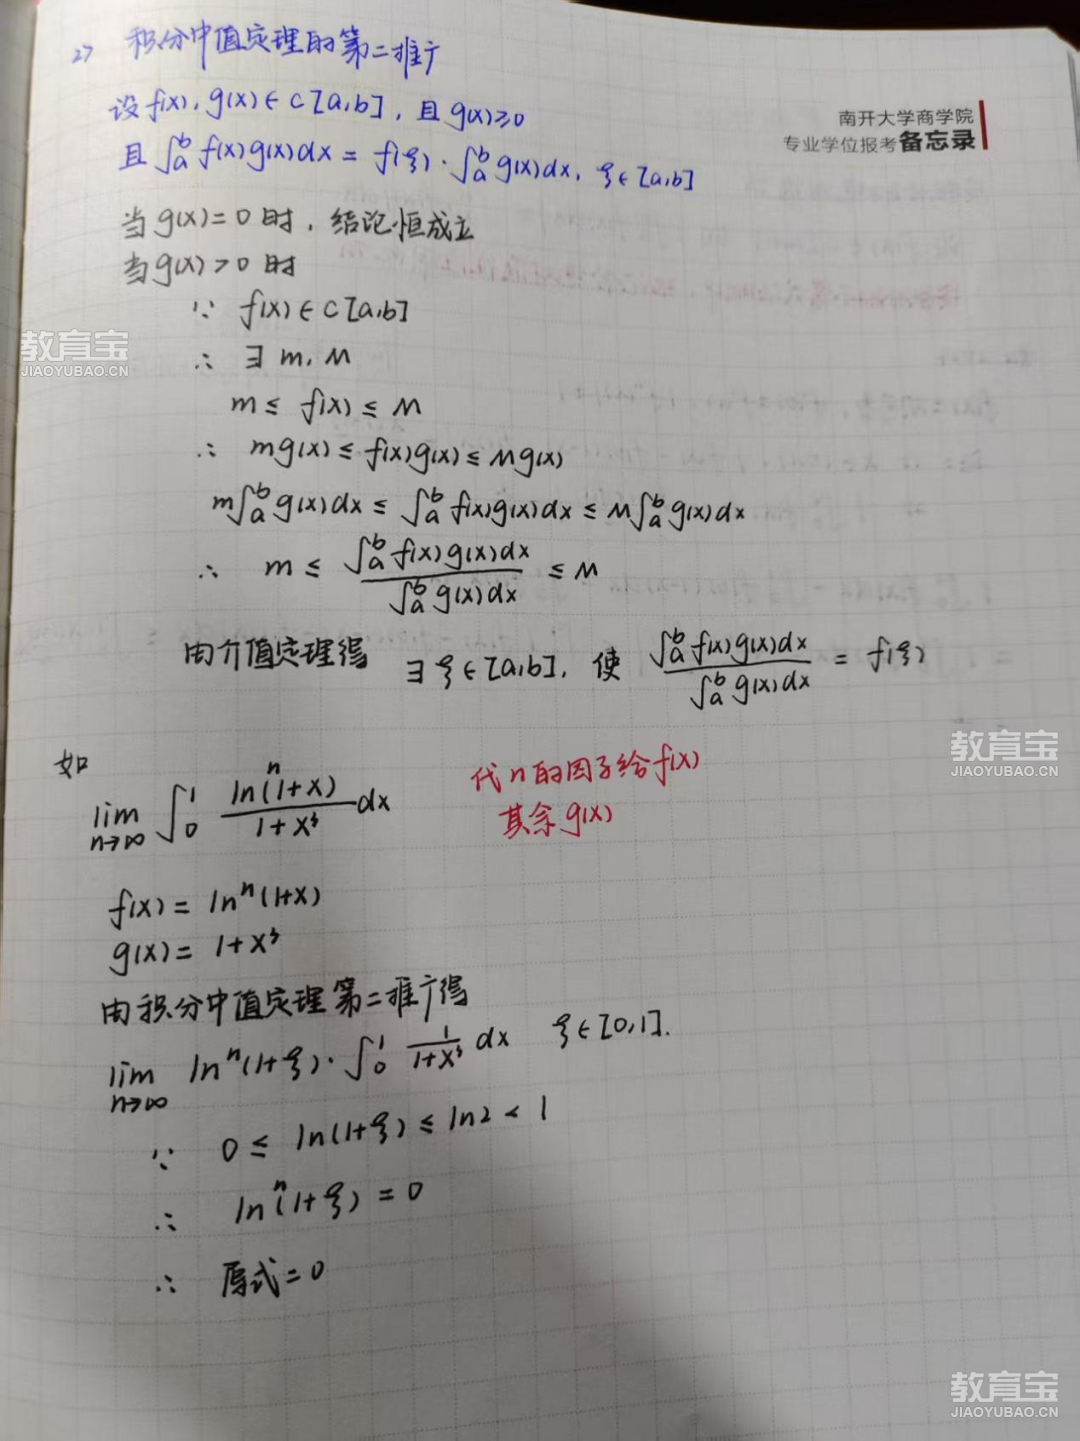 2> 积分中值定理的第二推广
设 f(x), g(x) ∈ C[a,b], 且 g(x)≥0
且 ∫_a^b f(x)g(x)dx = f(ξ)·∫_a^b g(x)dx, ξ∈[a,b]
南开大学商学院
专业学位报考备忘录
当 g(x)=0 时, 结论恒成立
当 g(x)>0 时
∵ f(x) ∈ C[a,b]
∴ ∃ m, M
m ≤ f(x) ≤ M
∴ mg(x) ≤ f(x)g(x) ≤ Mg(x)
m∫_a^b g(x)dx ≤ ∫_a^b f(x)g(x)dx ≤ M∫_a^b g(x)dx
∴ m ≤ ∫_a^b f(x)g(x)dx / ∫_a^b g(x)dx ≤ M
由介值定理得 ∃ ξ∈[a,b], 使 ∫_a^b f(x)g(x)dx / ∫_a^b g(x)dx = f(ξ)
如
lim_{n→∞} ∫_0^1 ln^n(1+x) / (1+x³) dx
代n的因子给f(x)
其余g(x)
f(x) = ln^n(1+x)
g(x) = 1+x³
由积分中值定理第二推广得
lim_{n→∞} ln^n(1+ξ)·∫_0^1 1/(1+x³) dx ξ∈[0,1].
∵ 0 ≤ ln(1+ξ) ≤ ln2 < 1
∴ ln^n(1+ξ) = 0
∴ 原式=0
教育宝
JIAOYUBAO.CN
教育宝
JIAOYUBAO.CN
教育宝
JIAOYUBAO.CN